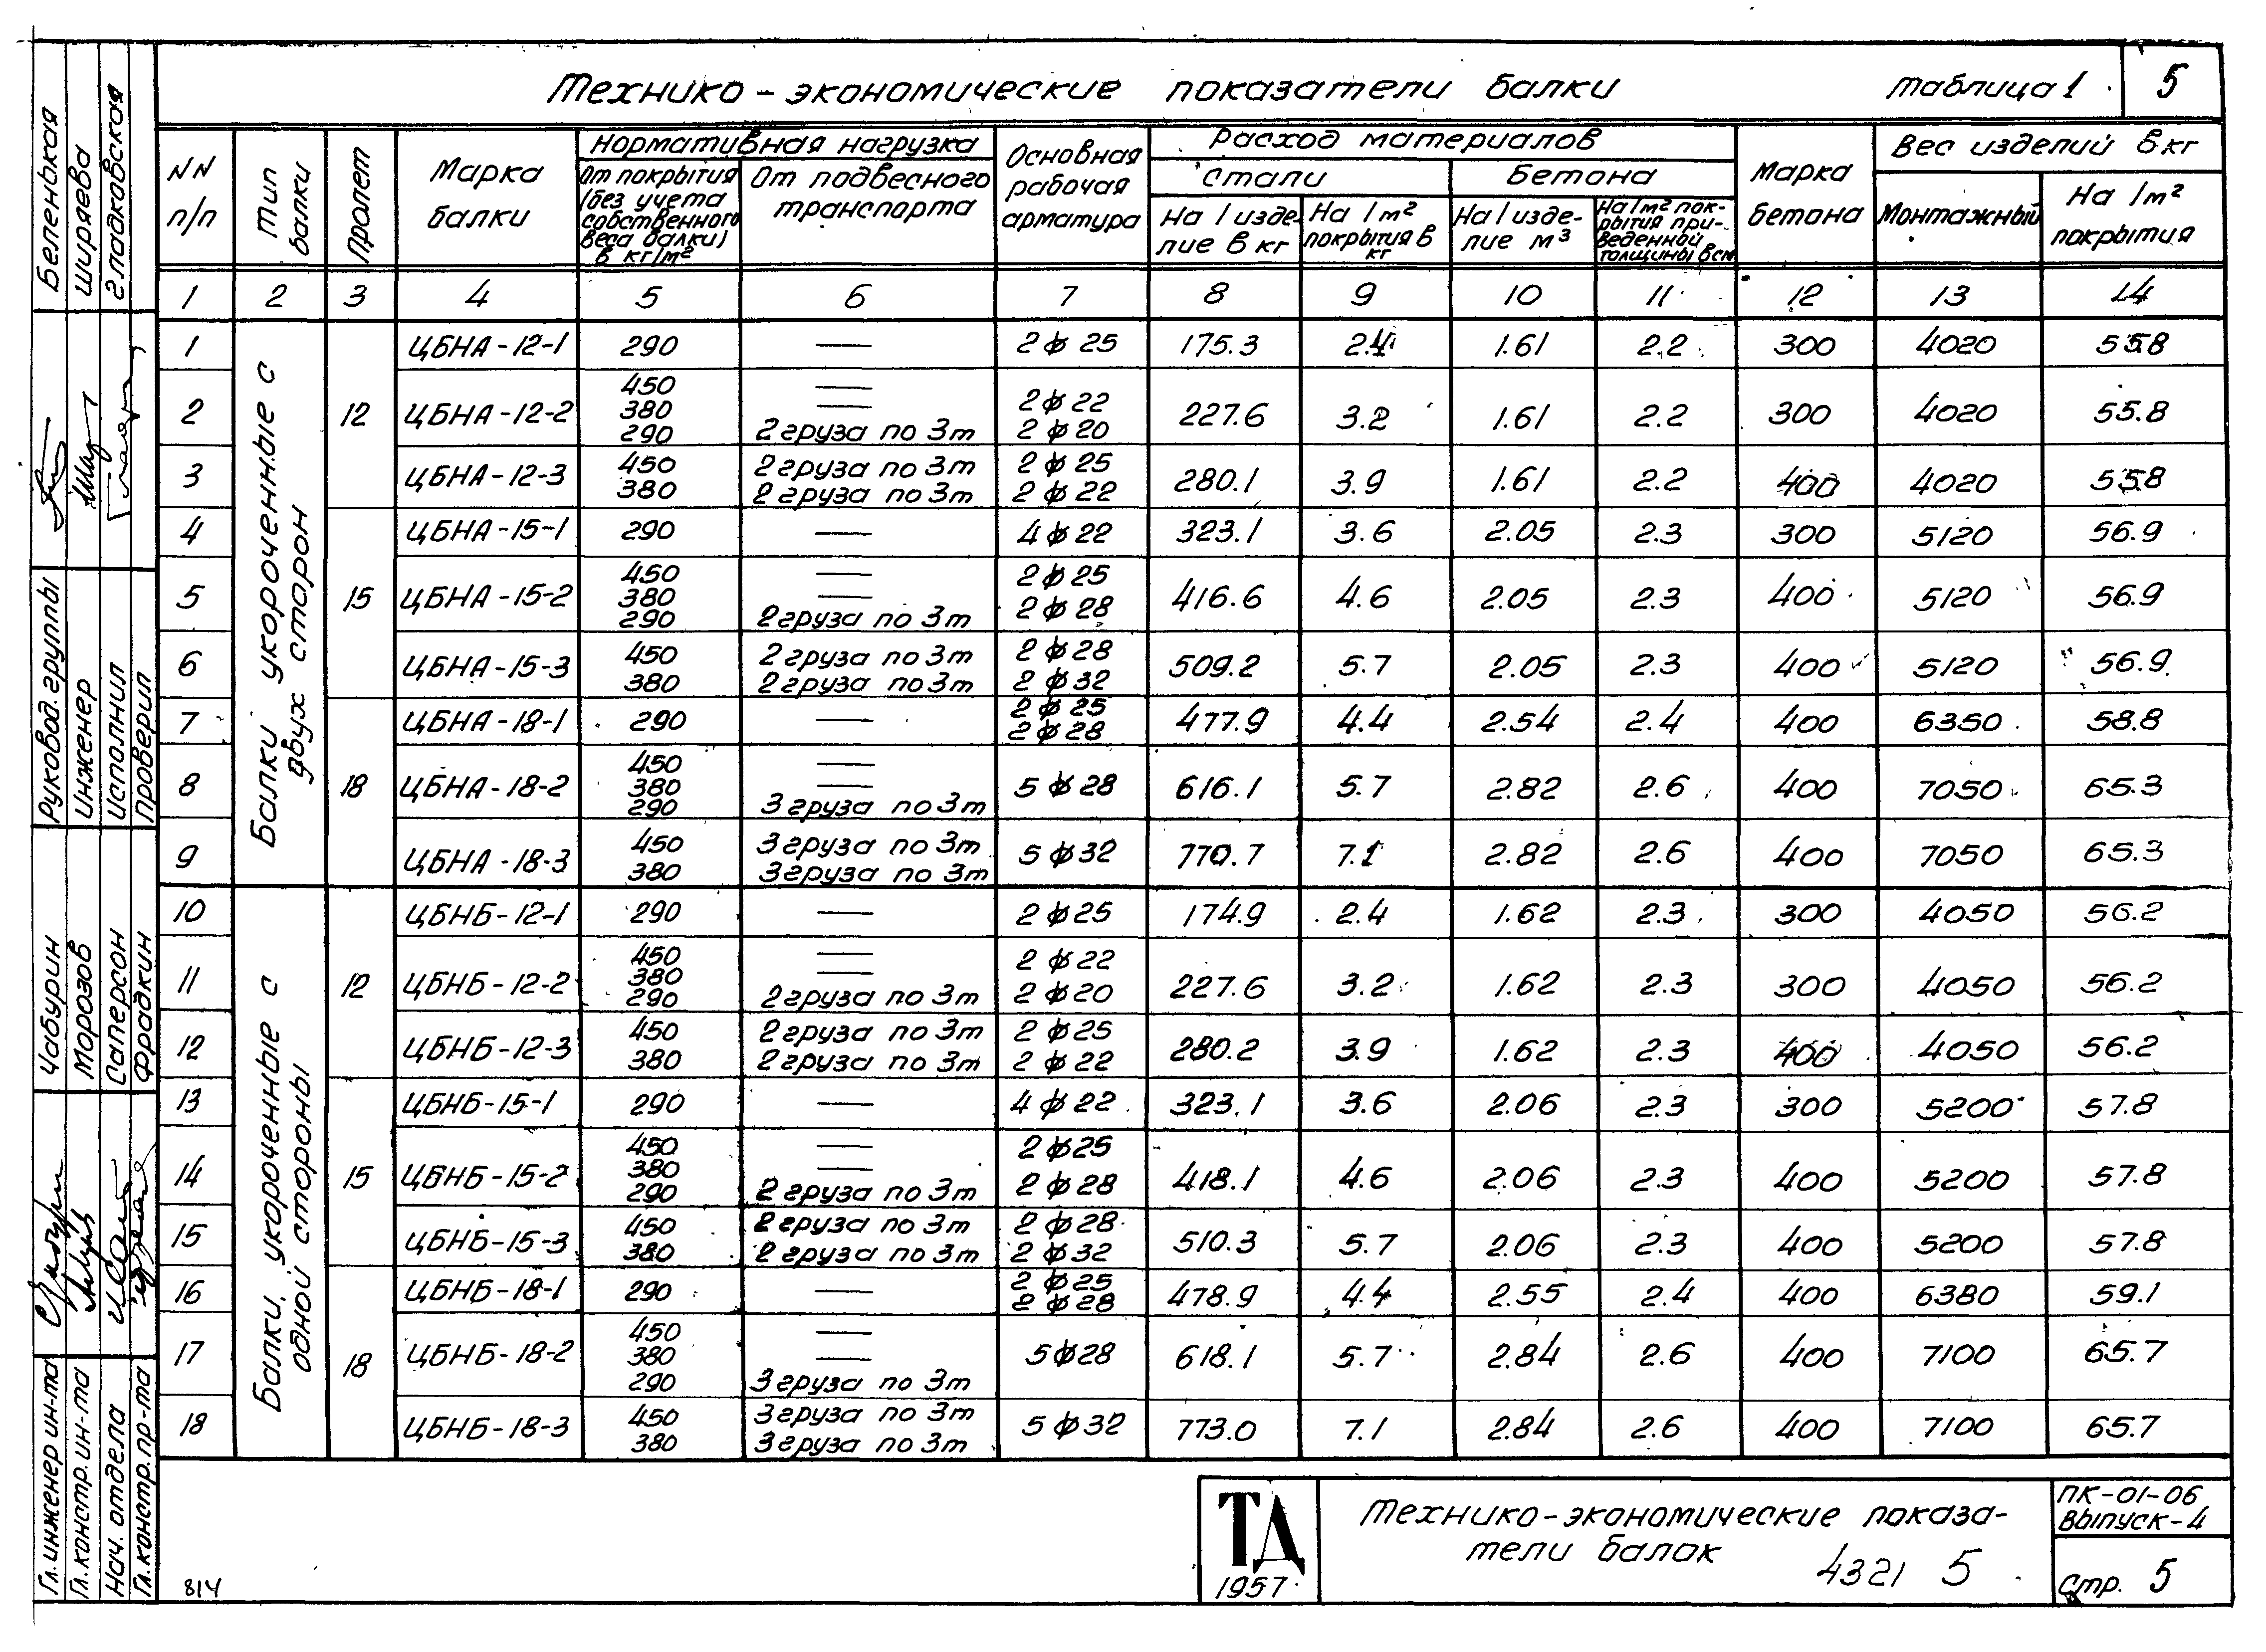 Технико-экономические показатели балки таблица 1 5
NN п/п
Тип балки
Пролет
Марка балки
Нормативная нагрузка
От покрытия (без учета собственного веса балки) в кг/м²
От подвесного транспорта
Основная рабочая арматура
Расход материалов
Стали
На 1 изделие в кг
На 1 м² покрытия в кг
Бетона
На 1 изделие м³
На 1 м² покрытия приведенной толщины в см
Марка бетона
Вес изделий в кг
Монтажный
На 1м² покрытия
1 2 3 4 5 6 7 8 9 10 11 12 13 14
Балки укороченные с двух сторон
12
1 ЦБНА-12-1 290 — 2ф25 175.3 2.4 1.61 2.2 300 4020 55.8
2 ЦБНА-12-2 450 — 2ф22 227.6 3.2 1.61 2.2 300 4020 55.8
380 —
290 2 груза по 3т 2ф20
3 ЦБНА-12-3 450 2 груза по 3т 2ф25 280.1 3.9 1.61 2.2 400 4020 55.8
380 2 груза по 3т 2ф22
15
4 ЦБНА-15-1 290 — 4ф22 323.1 3.6 2.05 2.3 300 5120 56.9
5 ЦБНА-15-2 450 — 2ф25 416.6 4.6 2.05 2.3 400 5120 56.9
380 —
290 2 груза по 3т 2ф28
6 ЦБНА-15-3 450 2 груза по 3т 2ф28 509.2 5.7 2.05 2.3 400 5120 56.9
380 2 груза по 3т 2ф32
18
7 ЦБНА-18-1 290 — 2ф25 477.9 4.4 2.54 2.4 400 6350 58.8
2ф28
8 ЦБНА-18-2 450 — 5ф28 616.1 5.7 2.82 2.6 400 7050 65.3
380 —
290 3 груза по 3т
9 ЦБНА-18-3 450 3 груза по 3т 5ф32 770.7 7.1 2.82 2.6 400 7050 65.3
380 3 груза по 3т
Балки укороченные с одной стороны
12
10 ЦБНБ-12-1 290 — 2ф25 174.9 2.4 1.62 2.3 300 4050 56.2
11 ЦБНБ-12-2 450 — 2ф22 227.6 3.2 1.62 2.3 300 4050 56.2
380 —
290 2 груза по 3т 2ф20
12 ЦБНБ-12-3 450 2 груза по 3т 2ф25 280.2 3.9 1.62 2.3 400 4050 56.2
380 2 груза по 3т 2ф22
15
13 ЦБНБ-15-1 290 — 4ф22 323.1 3.6 2.06 2.3 300 5200 57.8
14 ЦБНБ-15-2 450 — 2ф25 418.1 4.6 2.06 2.3 400 5200 57.8
380 —
290 2 груза по 3т 2ф28
15 ЦБНБ-15-3 450 2 груза по 3т 2ф28 510.3 5.7 2.06 2.3 400 5200 57.8
380 2 груза по 3т 2ф32
18
16 ЦБНБ-18-1 290 — 2ф25 478.9 4.4 2.55 2.4 400 6380 59.1
2ф28
17 ЦБНБ-18-2 450 — 5ф28 618.1 5.7 2.84 2.6 400 7100 65.7
380 —
290 3 груза по 3т
18 ЦБНБ-18-3 450 3 груза по 3т 5ф32 773.0 7.1 2.84 2.6 400 7100 65.7
380 3 груза по 3т
Гл. инженер ин-та Чабурин Руковод. группы Беленькая
Гл. констр. ин-та Морозов Инженер Ширяева
Нач. отдела Саперсон Исполнил Гладковская
Гл. констр. пр-та Фрадкин Проверил
814
ТА
1957
Технико-экономические показа-
тели балок
4321 5
ПК-01-06
Выпуск-4
Стр. 5